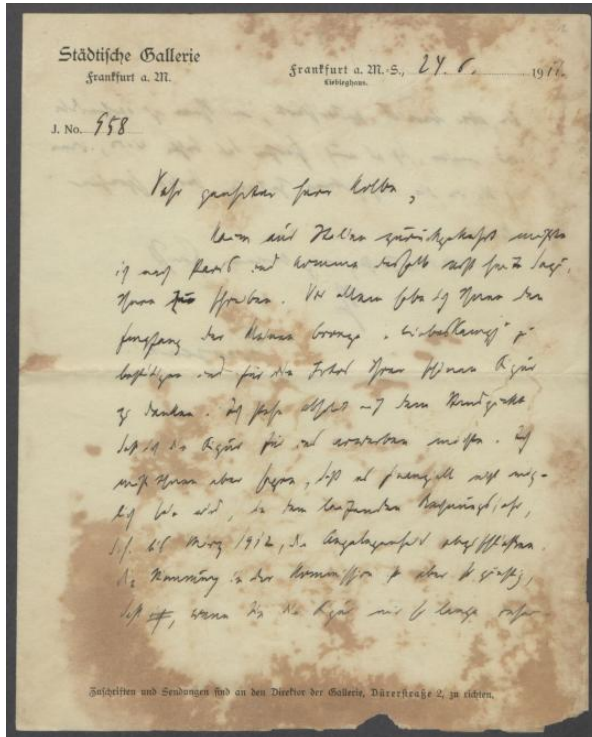 Städtische Gallerie
Frankfurt a. M.
Frankfurt a. M.-S., 24. 6. 1911.
Liebieghaus.
J. No. 958
Sehr geehrter Herr Kolbe,
Kaum aus Italien zurückgekehrt musste
ich nach Paris und komme deshalb erst heute dazu,
Ihnen zu schreiben. Vor allem habe ich Ihnen den
Empfang der kleinen Bronze „Liebeskampf" zu
bestätigen und für die Fotos Ihrer schönen Figur
zu danken. Ich stehe absolut auf dem Standpunkt
daß ich die Figur für uns erwerben möchte. Ich
muß Ihnen aber sagen, daß es finanziell nicht mög-
lich sein wird, in dem laufenden Rechnungsjahr,
d. h. bis März 1912, die Angelegenheit abzuschließen.
Die Stimmung in der Kommission ist aber so günstig,
daß, wenn Sie die Figur mir so lange
Zuschriften und Sendungen sind an den Direktor der Gallerie, Dürerstraße 2, zu richten.